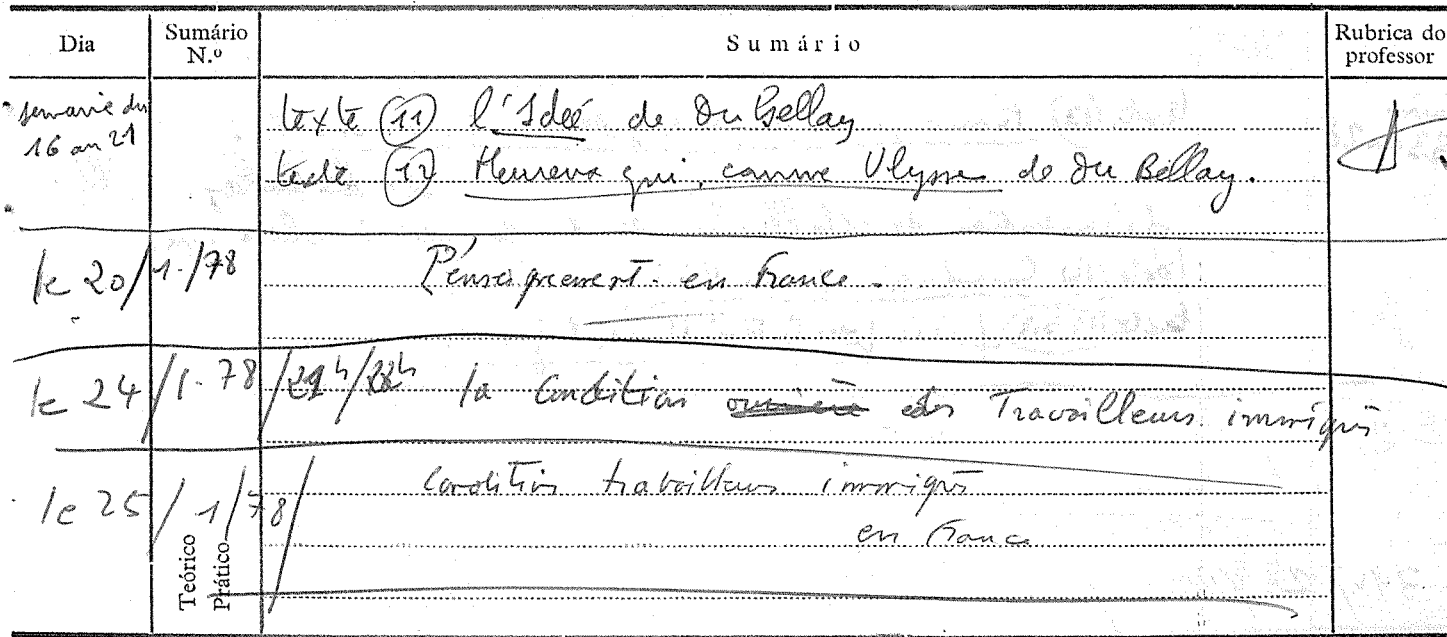 Dia Sumário N.º Sumário Rubrica do professor
semaine du 16 au 21
texte (11) l'Idée de Du Bellay
texte (12) Heureux qui, comme Ulysse de Du Bellay.
le 20/1./78 l'enseignement en France.
le 24/1.78/21h/22h la Condition ouvrière des Travailleurs immigrés
le 25/1/78/ Condition travailleurs immigrés
en France
Teórico
Prático